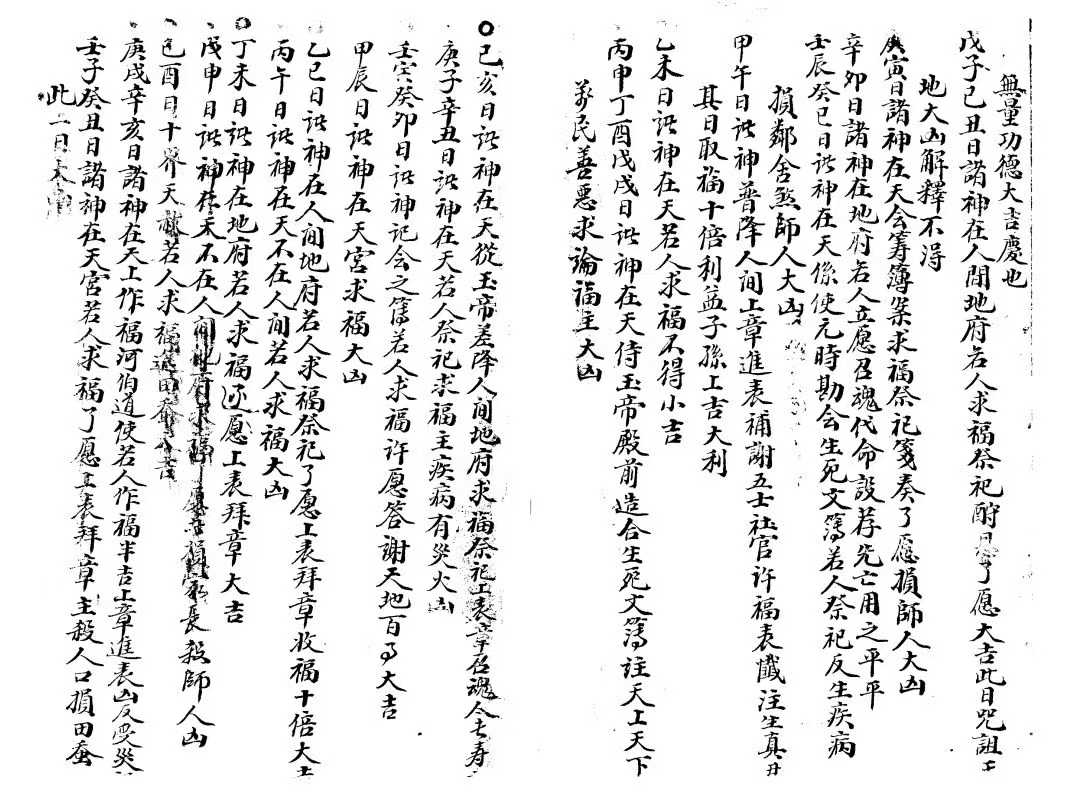 無量功德大吉慶也
戊子己丑日諸神在人間地府若人求福祭祀酧恩了愿大吉此日咒詛上
地大凶解釋不得
庚寅日諸神在天会筹簿案求福祭祀箋奏了愿損師人大凶
辛夘日諸神在地府若人立愿召魂代命設荐先亡用之平平
壬辰癸巳日诸神在天係使元時勘会生死文簿若人祭祀反生疾病
損鄰舍煞師人大凶
甲午日诸神普降人间上章進表補謝五土社官许福表懺注生真
其日取福十倍利益子孫上吉大利
乙未日诸神在天若人求福不得小吉
丙申丁酉戊戌日诸神在天侍玉帝殿前造合生死文簿註天上天下
萬民善惡求論福主大凶
己亥日诸神在天從玉帝差降人间地府求福祭祀上表章召魂令去寿
庚子辛丑日诸神在天若人祭祀求福主疾病有災火凶
壬寅癸夘日诸神记会之簿若人求福许愿答謝天地百事大吉
甲辰日诸神在天宮求福大凶
乙巳日诸神在人间地府若人求福祭祀了愿上表拜章收福十倍大吉
丙午日诸神在天不在人间若人求福大凶
丁未日诸神在地府若人求福还愿上表拜章大吉
戊申日诸神在天不在人间地府求福 損家長殺師人凶
己酉日十界天赦若人求福進田蚕大吉
庚戌辛亥日諸神在天上作福河伯道使若人作福半吉上章進表凶反受災
壬子癸丑日諸神在天宮若人求福了愿上表拜章主殺人口損田蚕
此二日大凶